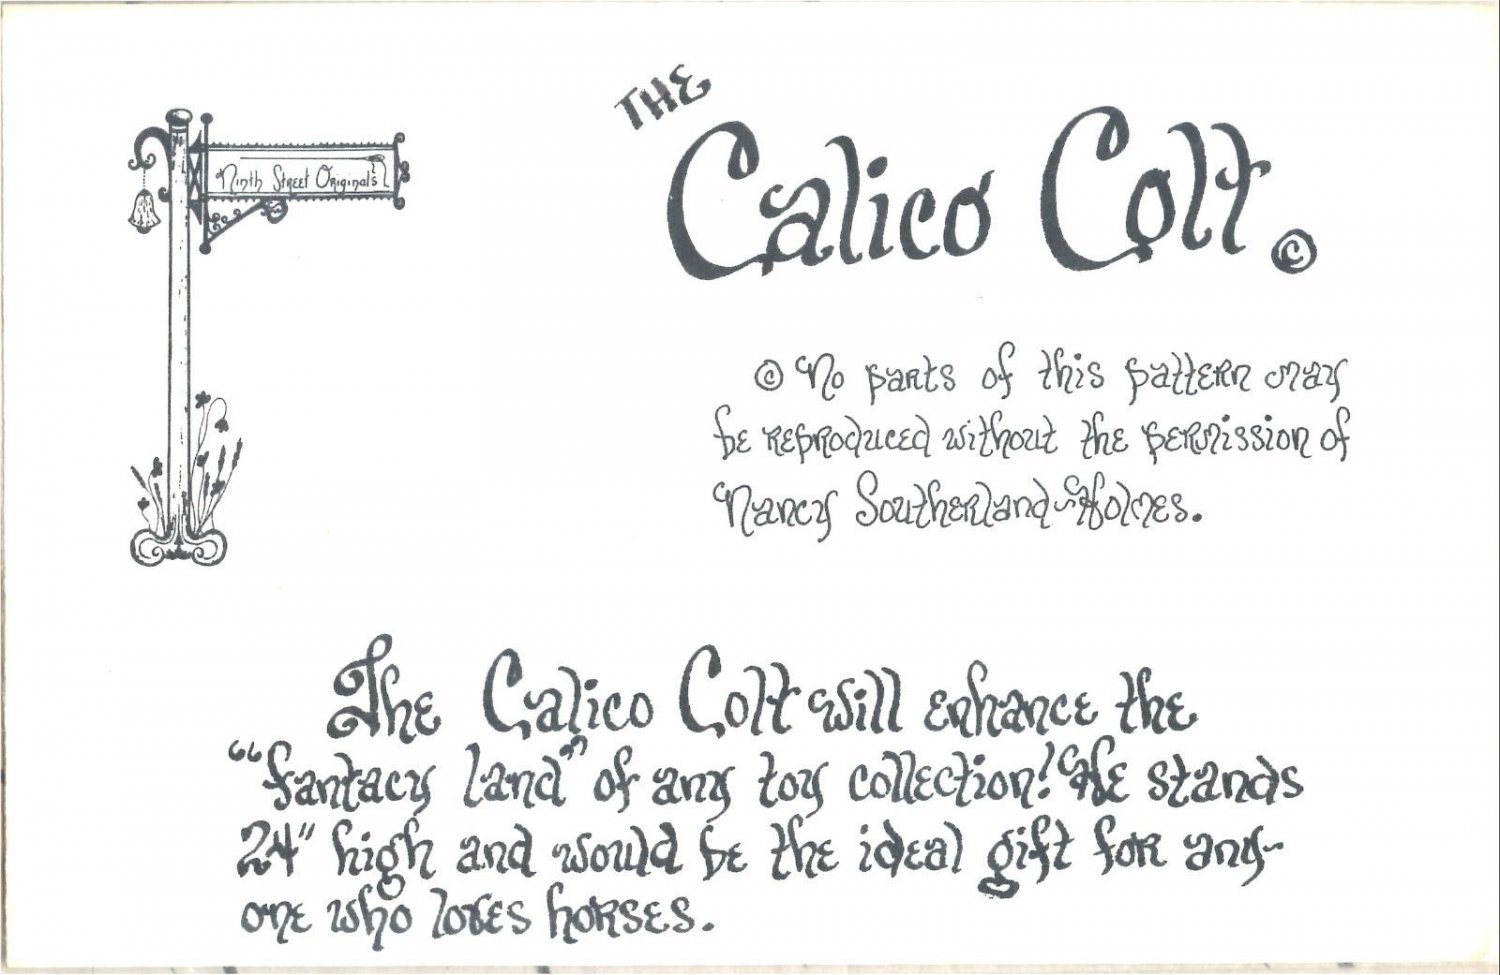 Ninth Street Originals
THE
Calico Colt ©
© No parts of this pattern may
be reproduced without the permission of
Nancy Southerland-Holmes.
The Calico Colt will enhance the
"fantacy land" of any toy collection! He stands
24" high and would be the ideal gift for any-
one who loves horses.